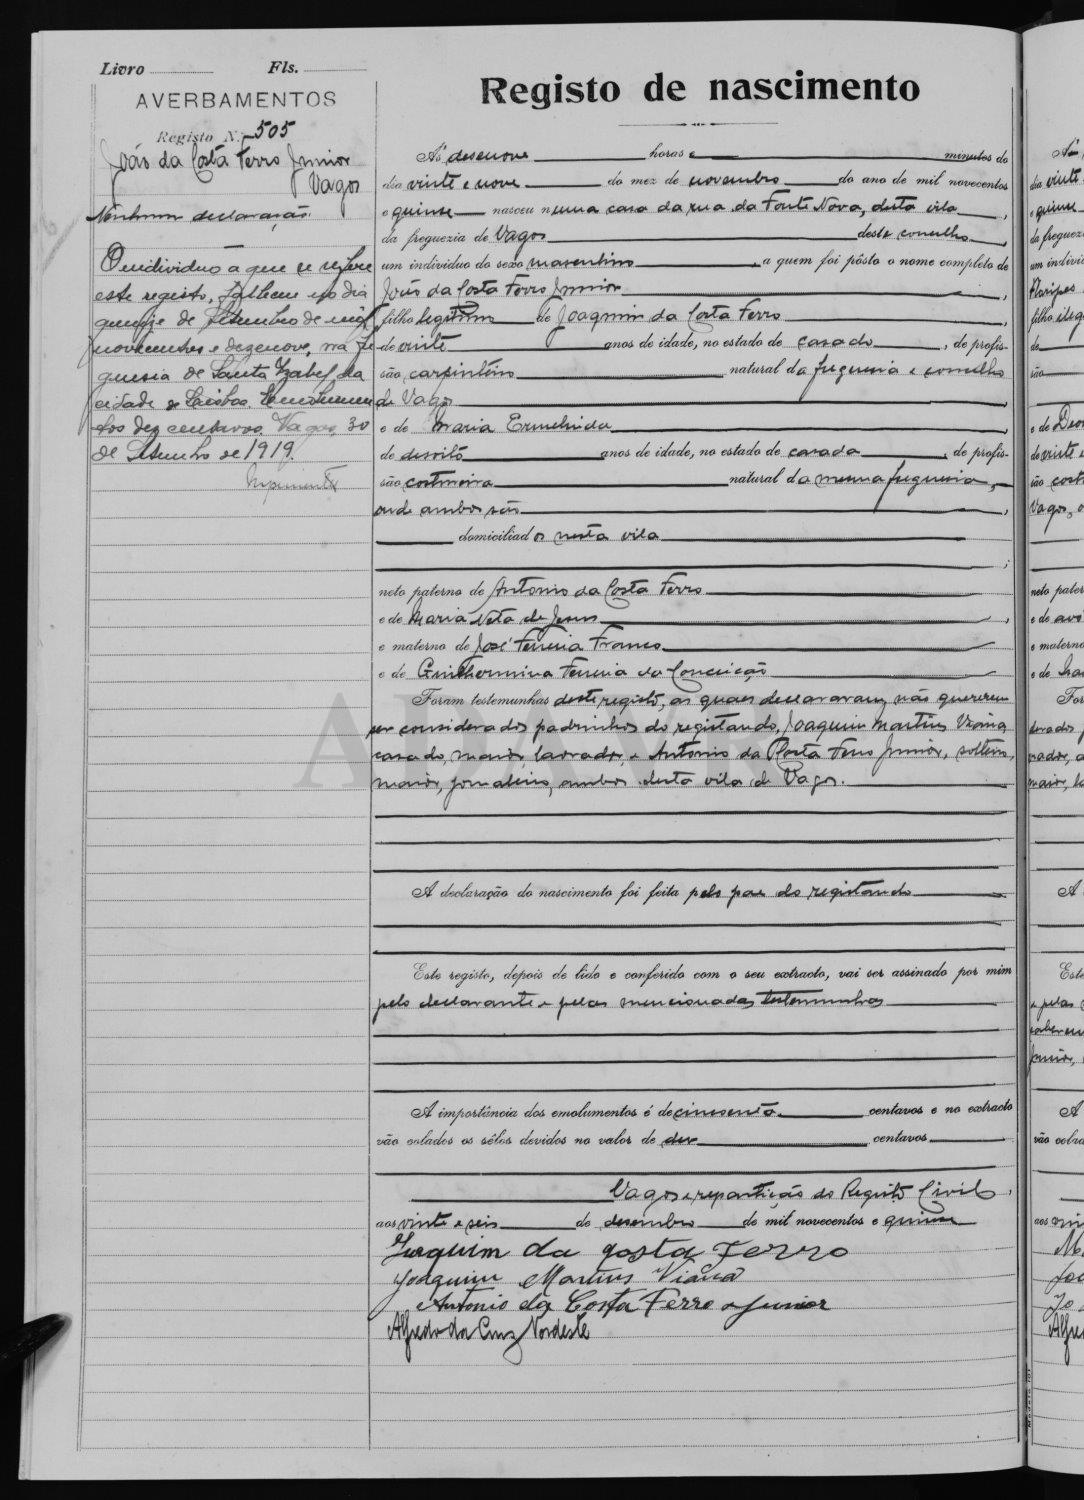 Livro Fls.
AVERBAMENTOS
Registo N.º 505
João da Costa Ferro Junior
Vagos
Nenhuma declaração.
O individuo a que se refere
este registo, falleceu no dia
quinze de Setembro de mil
novecentos e dezenove, na fre-
guesia de Santa Izabel, da
cidade de Lisboa. Emolumen
tos dez centavos. Vagos, 30
de Setembro de 1919.
Registo de nascimento
Ás desenove horas e minutos do
dia vinte e nove do mez de novembro do ano de mil novecentos
e quinse nasceu numa casa da rua da Fonte Nova, desta vila,
da freguezia de Vagos deste concelho,
um individuo do sexo masculino, a quem foi pôsto o nome completo de
João da Costa Ferro Junior,
filho legitimo de Joaquim da Costa Ferro,
de vinte anos de idade, no estado de casado, de profis-
são carpinteiro natural da freguesia e concelho
de Vagos,
e de Maria Ermelinda,
de desoito anos de idade, no estado de casada, de profis-
são costureira natural da mesma freguesia,
onde ambos são,
domiciliados nesta vila
;
neto paterno de Antonio da Costa Ferro
e de Maria Neta de Jesus,
e materno de José Ferreira Franco
e de Guilhermina Ferreira da Conceição
Foram testemunhas deste registo, as quaes declararam não quererem
ser considerados padrinhos do registando, Joaquim Martins Viana,
casado, maior, lavrador, e Antonio da Costa Ferro Junior, solteiro,
maior, jornaleiro, ambos desta vila de Vagos.
A declaração do nascimento foi feita pelo pae do registando
Este registo, depois de lido e conferido com o seu extracto, vai ser assinado por mim
pelo declarante e pelas mencionadas testemunhas
A importância dos emolumentos é de cincoenta centavos e no extracto
vão colados os sêlos devidos no valor de dez centavos
Vagos e repartição do Registo Civil,
aos vinte e seis de desembro de mil novecentos e quinse
Joaquim da Costa Ferro
Joaquim Martins Viana
Antonio da Costa Ferro Junior
Alfredo da Cruz Nordeste